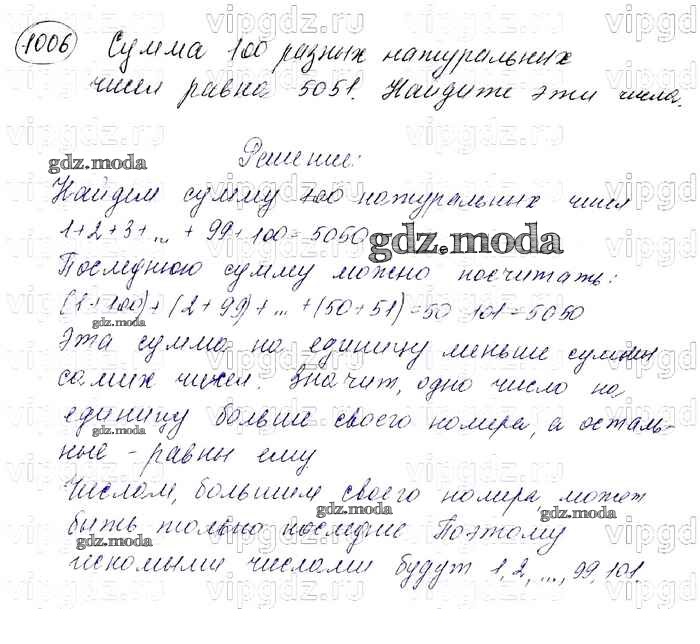 1006 Сумма 100 разных натуральных
чисел равна 5051. Найдите эти числа.
Решение:
gdz.moda
Найдем сумму 100 натуральных чисел
1+2+3+ ... + 99+100=5050
gdz.moda
Последнюю сумму можно посчитать:
(1+100)+(2+99)+...+(50+51)=50·101=5050
gdz.moda
Эта сумма на единицу меньше суммы
самих чисел. Значит, одно число на
единицу больше своего номера, а осталь-
gdz.moda
ные - равны ему
Числом, большим своего номера может
быть только последнее Поэтому
gdz.moda
gdz.moda
искомыми числами будут 1, 2, ..., 99, 101.
vipgdz